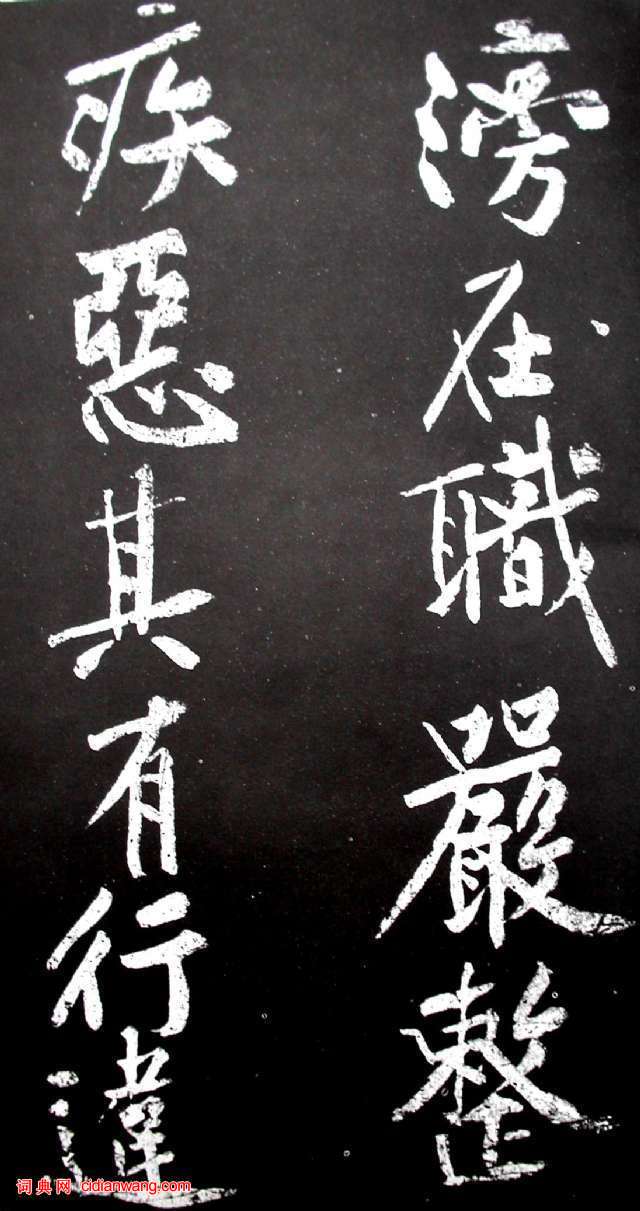 滂在職嚴整
疾惡其有行違
词典网 cidianwang.com